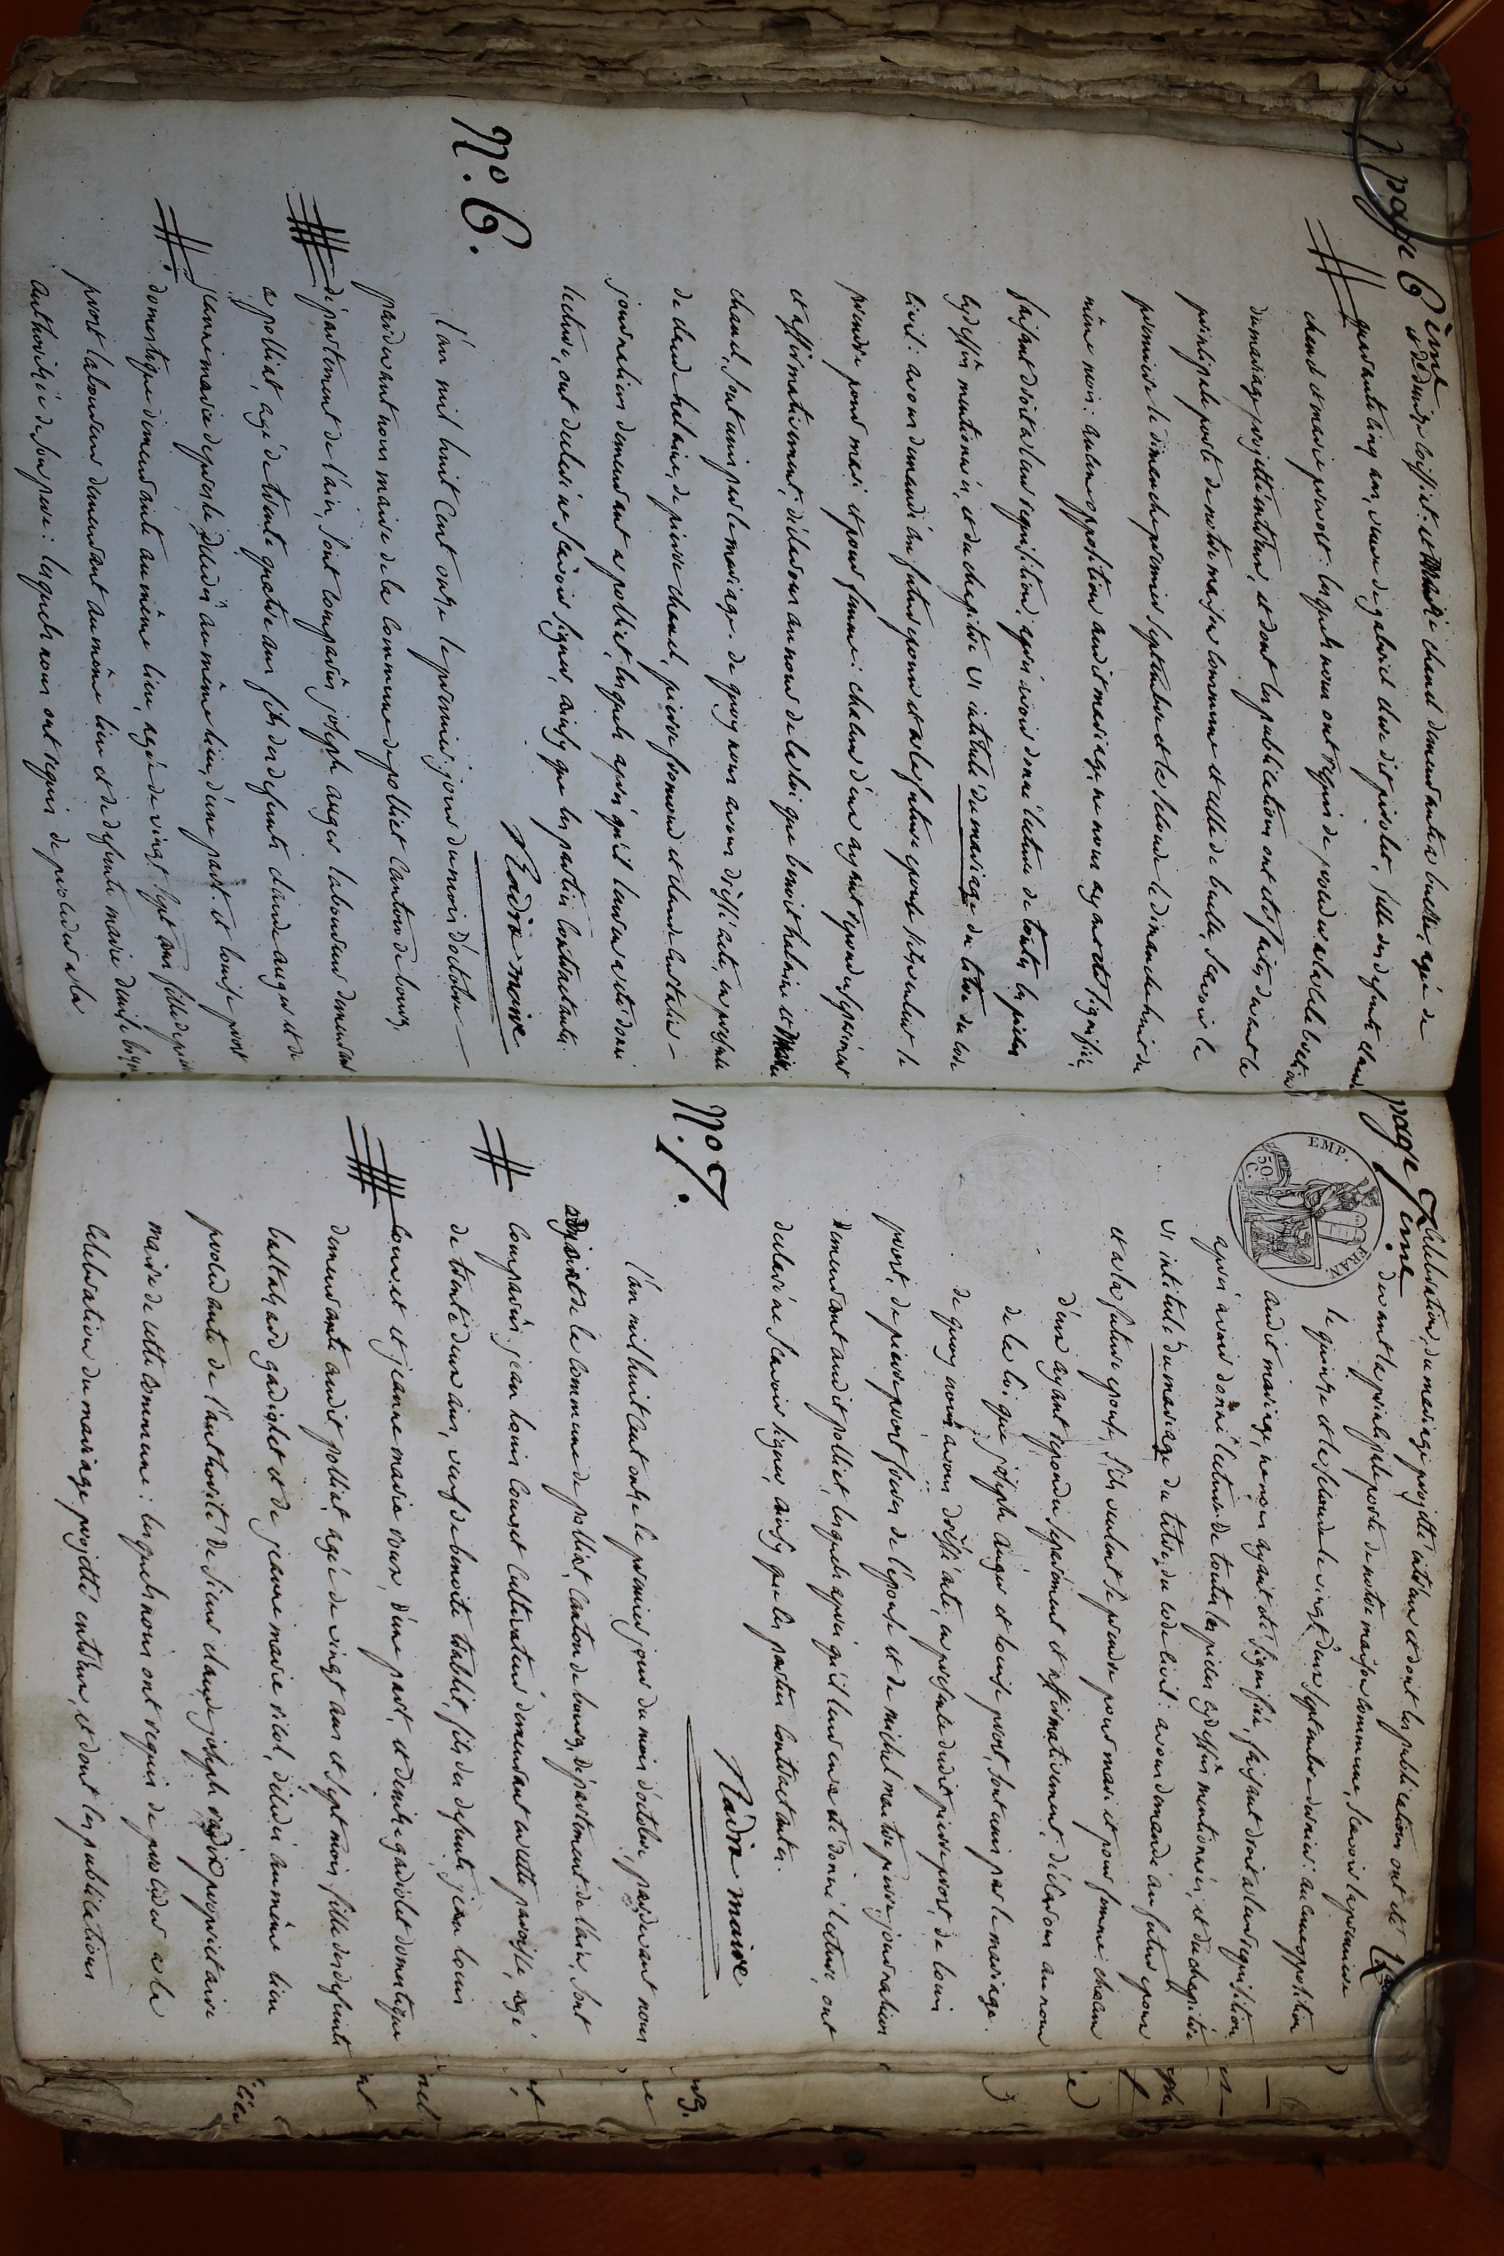 page 6ème
et de denise loisset. et marie chanel demeurante a buelle, agée de
quarante cinq ans, veuve de gabriel dit pirolet, fille des defunts claude
chanel et marie provost: lesquels nous ont requis de proceder a la celebration
du mariage projetté entr'eux, et dont les publications ont été faites devant la
principale porte de notre maison commune et celle de buelle, sçavoir la
premiere le dimanche premier septembre et la seconde le dimanche huit du
même mois: aucune opposition audit mariage ne nous ayant été signifiée
faisant droit a leur requisition, après avoir donné lecture de toutes les pièces
cydessus mentionnées, et du chapitre VI intitulé du mariage du titre du code
civil: avons demandé au futur epoux et a la future epouse s'ils veulent se
prendre pour mari et pour femme: chacun d'eux ayant repondu separement
et affirmativement, déclarons au nom de la loi que benoit halaine et marie
chanel, sont unis par le mariage. de quoy nous avons dréssé acte, en presence
de claude halaine, de pierre chanel, pierre et claude
journaliers demeurant a polliat, lesquels après qu'il leur en a été donné
lecture, ont declaré ne sçavoir signer, ainsy que les parties contractantes.
Nadin maire
N.º 6.
L'an mil huit cent onze le premier jour du mois d'octobre
pardevant nous maire de la commune de polliat canton de bourg,
département de l'ain, sont comparûs joseph auger laboureur demeurant
a polliat, agé de trente quatre ans fils des defunts claude auger et de
jeanne marie, décédés au même lieu, d'une part. et louise provost
domestique demeurante au même lieu, agée de vingt sept ans fille de pierre
provost laboureur demeurant au même lieu et de defunte marie denise
authorisée de son pere: lesquels nous ont requis de proceder a la
page 7ème
celebration du mariage projetté entr'eux et dont les publications ont été faites
devant la principale porte de notre maison commune, sçavoir la premiere
le quinze et la seconde le vingt deux septembre dernier: aucune opposition
audit mariage, ne nous ayant été signifiée, faisant droit a leur requisition,
après avoir donné lecture de toutes les pièces cydessus mentionnées, et du chapitre
VI intitulé du mariage du titre du code civil: avons demandé au futur epoux
et a la future epouse, s'ils veulent se prendre pour mari et pour femme: chacun
d'eux ayant repondu separément et affirmativement, déclarons au nom
de la loi, que joseph auger et louise provost, sont unis par le mariage.
de quoy nous avons dréssé acte, en presence dudit pierre provost, de louis
provost, de pierre provost freres de l'épouse et de michel journaliers
demeurant audit polliat, lesquels après qu'il leur en a été donné lecture, ont
declaré ne sçavoir signer, ainsy que les parties contractantes.
Nadin maire
N.º 7.
L'an mil huit cent onze le premier jour du mois d'octobre, pardevant nous
adjoint de la commune de polliat, canton de bourg, département de l'ain, sont
comparûs jean louis couvet cultivateur demeurant en cette paroisse, agé
de trente deux ans, veuf de benoite trablit, fils des defunts jean louis
couvet et jeanne marie, d'une part, et denise gadiolet domestique
demeurante audit polliat, agée de vingt ans et sept mois fille des defunts
baltazard gadiolet et de jeanne marie, décédés au même lieu
procedante de l'authorité de sieur claude joseph nadin proprietaire
maire de cette commune: lesquels nous ont requis de proceder a la
celebration du mariage projetté entr'eux, et dont les publications
EMP. FRAN.
50 C.